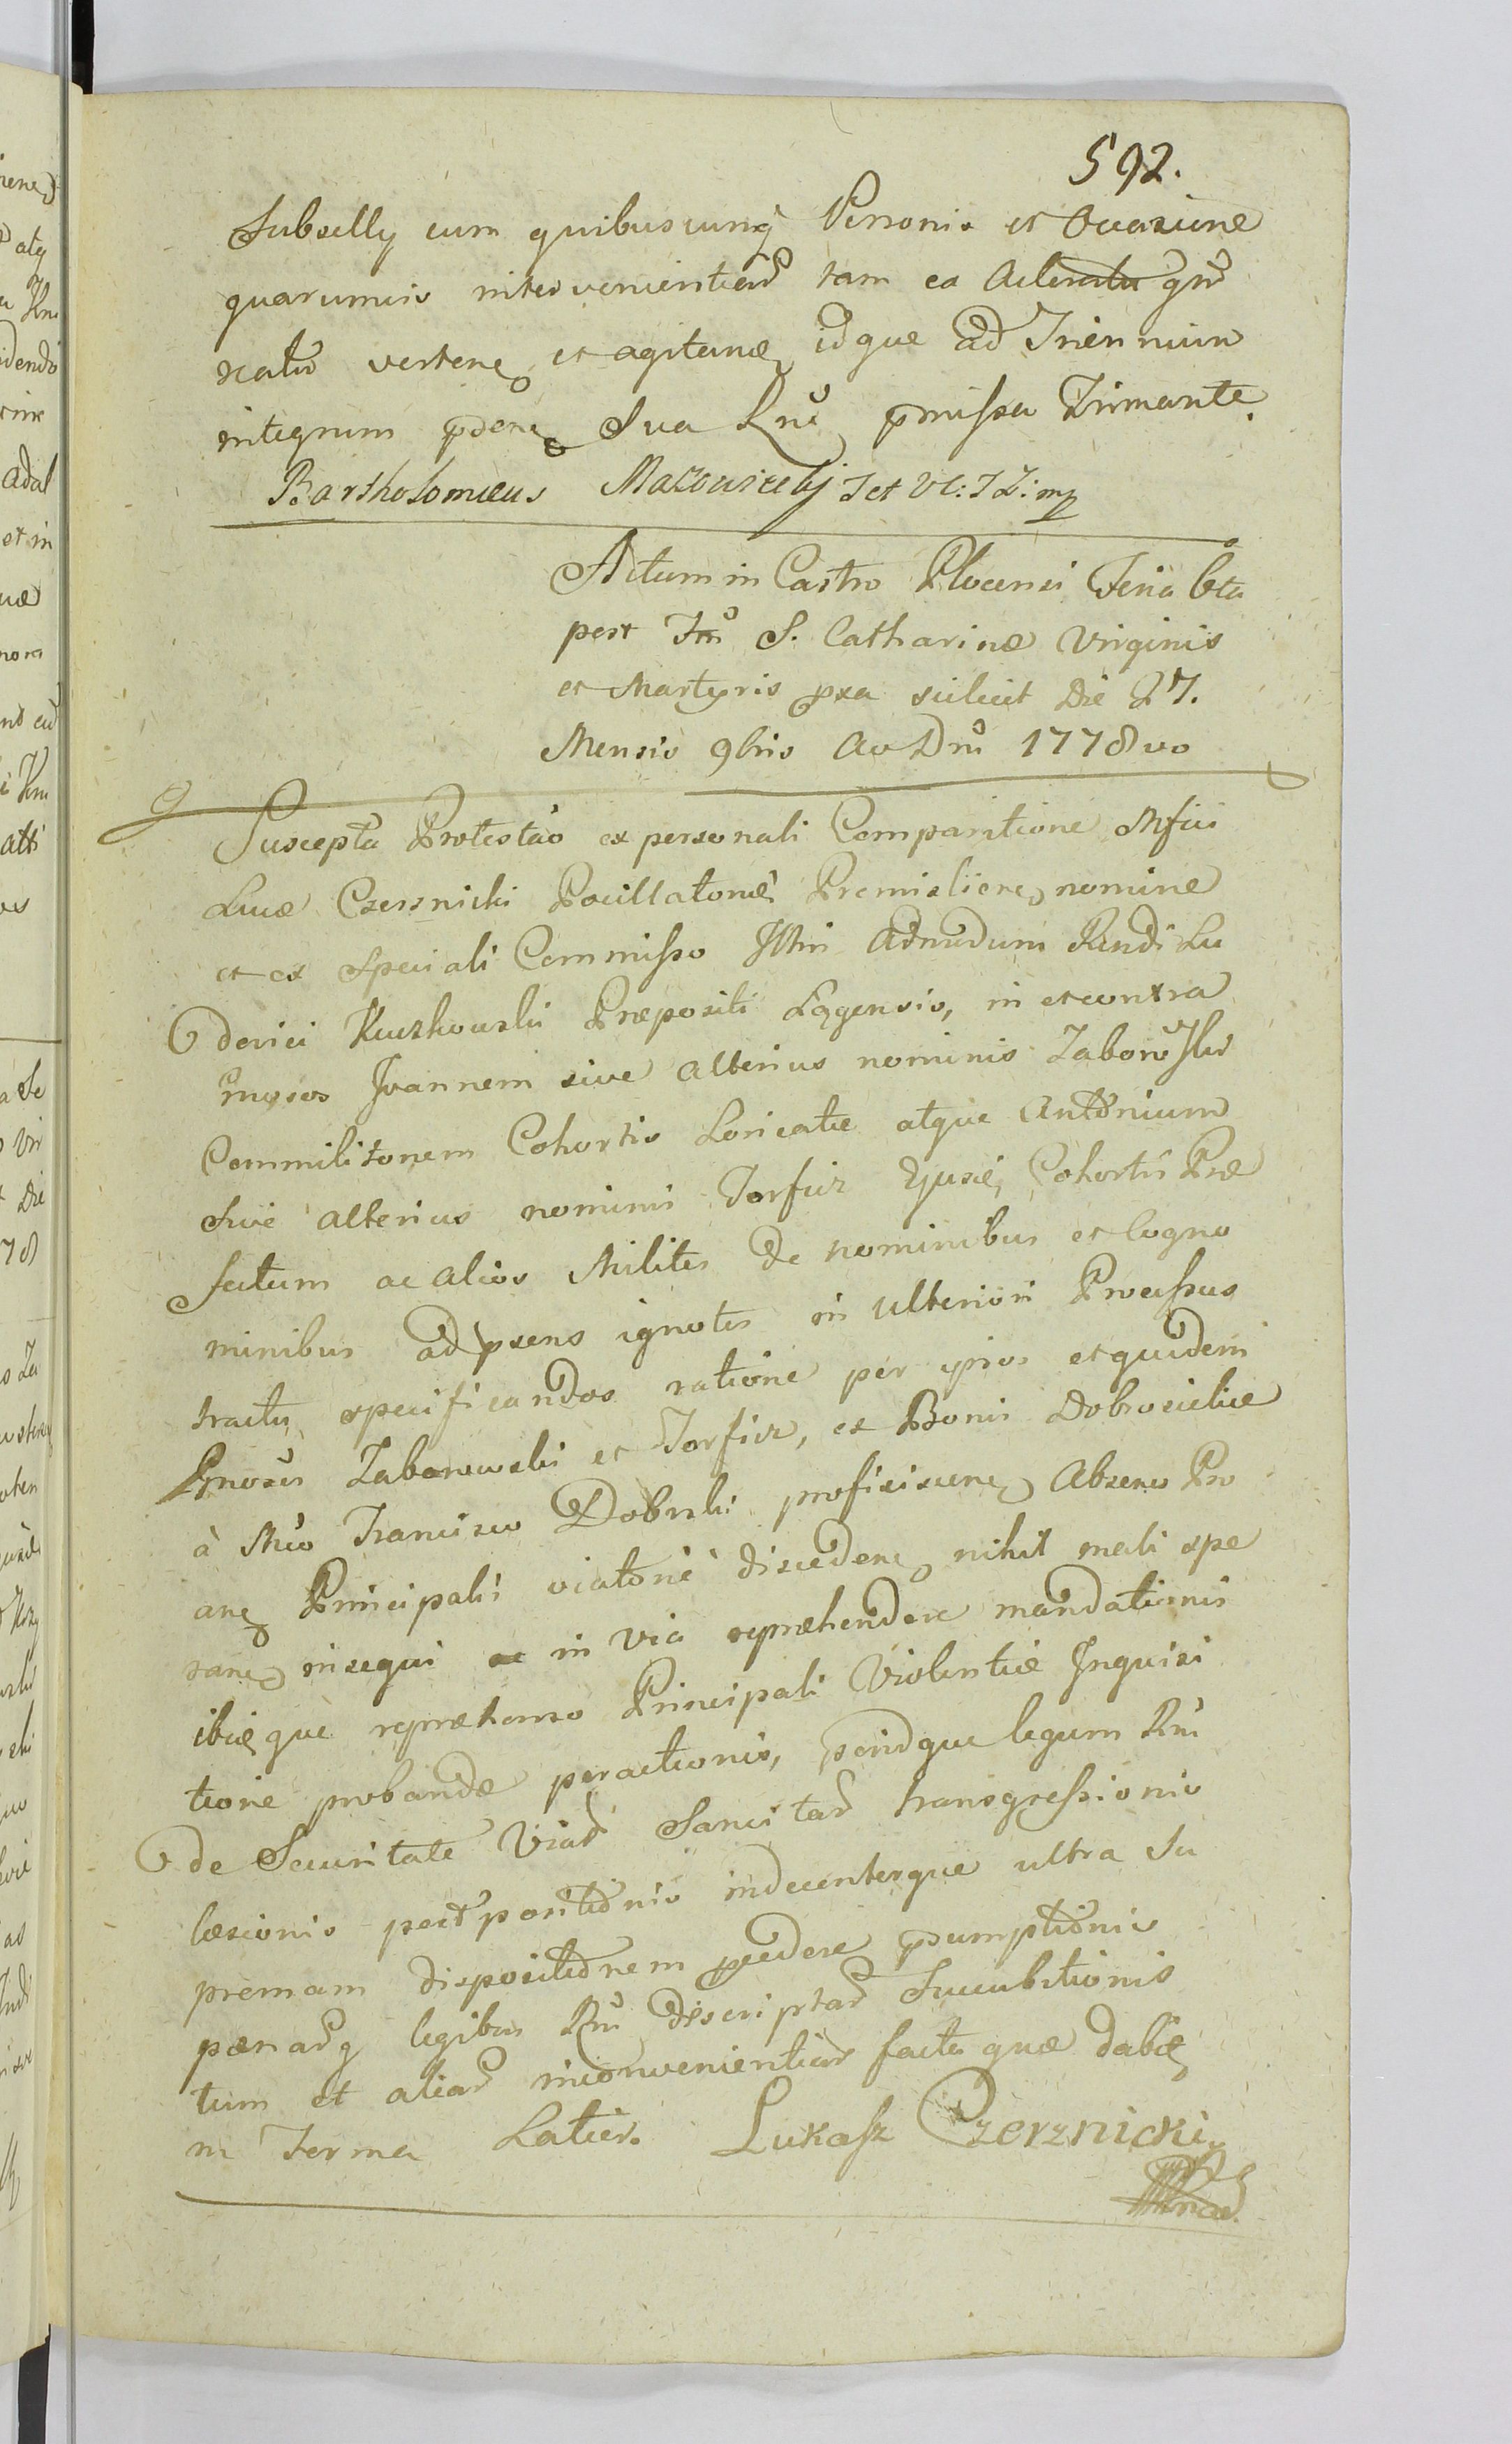 592.
Subselly cum quibuscunq Personis et Occasione
quarumvis intervenientiaru tam ea Actoratu qm
reatu verten et agitan, idque ad Triennium
integrum pden Sua Lru pmissa Firmante.
Bartholomicus Mazowiecky
Actum in Castro Plocensi Feria 6ta
post Ftm S. Catharinæ Virginis
et Martyris pxa scilicet Die 27.
Mensis 9bris Ao Dni 1778vo
Suscepta Protestao ex personali Comparitione Mfici
Lucæ Czerznicki Pocillatoris Premislien, nomine
et ex Speciali Commisso Illtris Admodum Rendi Lu
dovici Kuczkowski Præpositi Łęgensis, in et contra
Gnosos Joannem sive alterius nominis Zaborowski
Commilitonem Cohortis Loricatæ atque Antonium
Sive alterius nominis Torfur Ejusd Cohortis Præ
fectum ac alios Milites de nominibus et Cogno
minibus ad psens ignotos in ulteriori Processus
tractu specificandos ratione per ipsos et quidem
Gnosos Zaborowski et Torfur, ex Bonis Dobrosielice
à Mco Francisco Dobrski proficiscen, Absens Pro
an Principalis viatorie disceden, nihil mali spe
ran, insequi ac in via repræhendere mandationis
ibidque repræhenso Principali Violentiæ Inquisi
tione probandæ peractionis, perindque legum Rni
de Securitate Viar Sancitar transgressionis
læsionis postpositionis indecenterque ultra Su
premam dispositionem pcedere psumptionis
pænarq legibus Rni descriptar Succubitionis
tum et aliar inconvenientiar facta quæ dabit
in Forma Latior. Lukasz Czerznicki